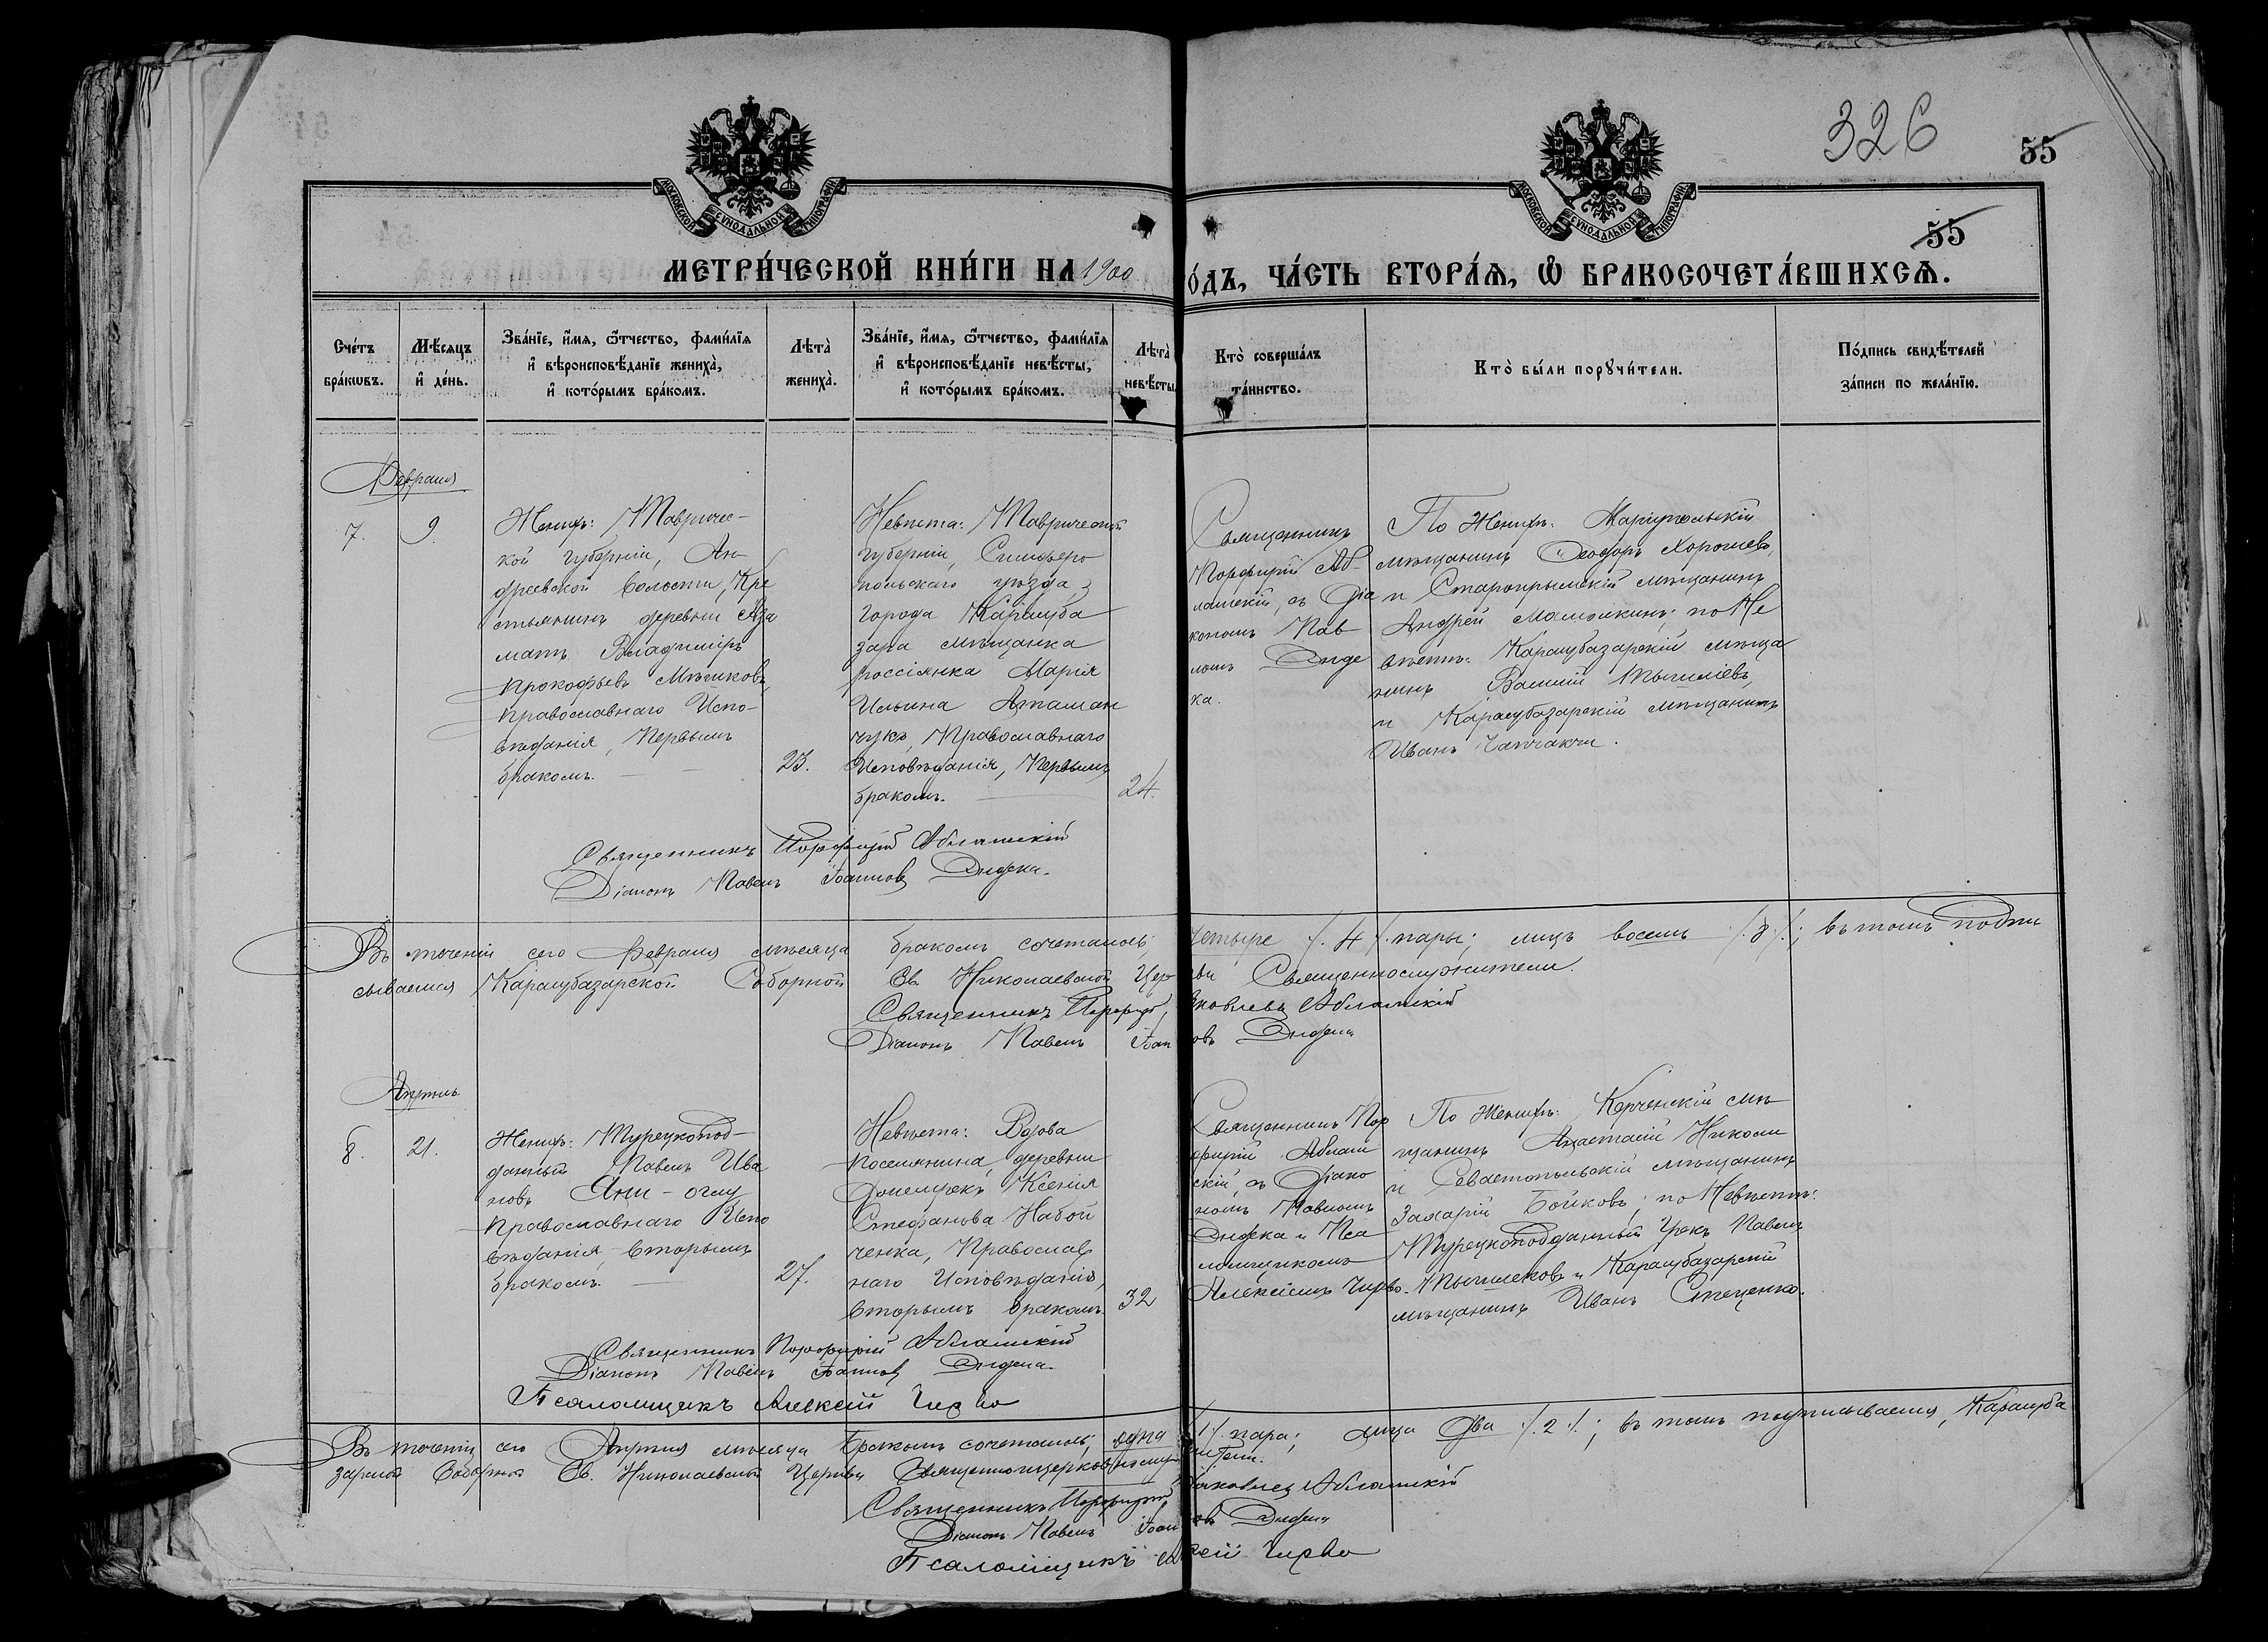 326
55
55
МОСКОВСКОЙ СѴНОДАЛЬНОЙ ТИПОГРАФІИ
МОСКОВСКОЙ СѴНОДАЛЬНОЙ ТИПОГРАФІИ
МЕТРИ́ЧЕСКОЙ КНИ́ГИ НА 1900
О́ДЪ, ЧА́СТЬ ВТОРА́Ѧ, Ѡ БРАКОСОЧЕТА́ВШИХСѦ.
Сче́тъ
бра́кѡвъ.
Мѣ́сяцъ
и҆ де́нь.
Зва́нїе, и҆́мя, ѻ҆́тчество, фами́лїя
и҆ вѣроисповѣ́данїе жениха̀,
и҆ кото́рымъ бра́комъ.
Лѣта̀
жениха̀.
Зва́нїе, и҆́мя, ѻ҆́тчество, фами́лїя
и҆ вѣроисповѣ́данїе невѣ́сты,
и҆ кото́рымъ бра́комъ.
Лѣта̀
невѣ́сты
Кто̀ соверша́лъ
та́инство.
Кто̀ бы́ли порꙋчи́тели.
По́дпись свидѣ́телей
за́писи по жела́нїю.
Февраля
7.
9.
Женихъ: Тавричес-
кой губерніи, Ан-
дреевской волости, Кре
стьянинъ деревни Аза
матъ Владиміръ
Прокофьевъ Мѣшковъ,
Православнаго Испо-
вѣданія, Первымъ
бракомъ.
23.
Невѣста: Таврической
губерніи, Симферо
польскаго уѣзда,
города Карасуба
зара мѣщанка
россіянка Марія
Ильина Атаман
чукъ, Православнаго
Исповѣданія, Первымъ
бракомъ.
24.
Священникъ
Порфирій Аб-
лашскій, съ Діа
кономъ Пав
ломъ Диде
ка.
По Женихѣ: Маріупольскій
мѣщанинъ Ѳеодоръ Хорошевъ,
и Старокрымскій мѣщанинъ
Андрей ; по Не
вѣстѣ: Карасубазарскій мѣща
нинъ Василій
и Карасубазарскій мѣщанинъ
Иванъ Чапчакчи.
Священникъ Порфирій Аблашскій
Діаконъ Павелъ Іоанновъ Дидека.
Въ теченіи сего Февраля мѣсяца бракомъ сочетались; четыре /.4./ пары; лицъ восемь /.8./; въ томъ подпи
сываемся Карасубазарской Соборной Св. Николаевской Церкви Священнослужители.
Священникъ Порфирій Яковлевъ Аблашскій
Діаконъ Павелъ Іоанновъ Дидека
Апрѣль
8.
21.
Женихъ: Турецкопод-
данный Павелъ Ива
новъ Яни-оглу
Православнаго Испо
вѣданія, вторымъ
бракомъ.
27.
Невѣста: Вдова
поселянина, деревни
Ксенія
Стефанова Набой
ченка, Православ
наго Исповѣданія,
вторымъ бракомъ.
32
Священникъ Пор
фирій Аблаш
скій, съ Діако
номъ Павломъ
Дидека и Пса
ломщикомъ
Алексіемъ Чирво.
По Женихѣ: Керченскій мѣ
щанинъ Анастасій Николи
и Севастопольскій мѣщанинъ
Захарій Бойковъ; по Невѣстѣ:
Турецкоподданный Грекъ Павелъ
и Карасубазарскій
мѣщанинъ Иванъ Стеценко.
Священникъ Порфирій Аблашскій
Діаконъ Павелъ Іоанновъ Дидека.
Псаломщикъ Алексій Чирво
Въ теченіи сего Апрѣля мѣсяца Бракомъ сочетались; одна /.1./ пара; лица два /.2./; въ томъ подписываемся, Карасуба
зарской Соборной Св. Николаевской Церкви Священноцерковнослужители.
Священникъ Порфирій Яковлевъ Аблашскій
Діаконъ Павелъ Іоанновъ Дидека
Псаломщикъ Алексей Чирво